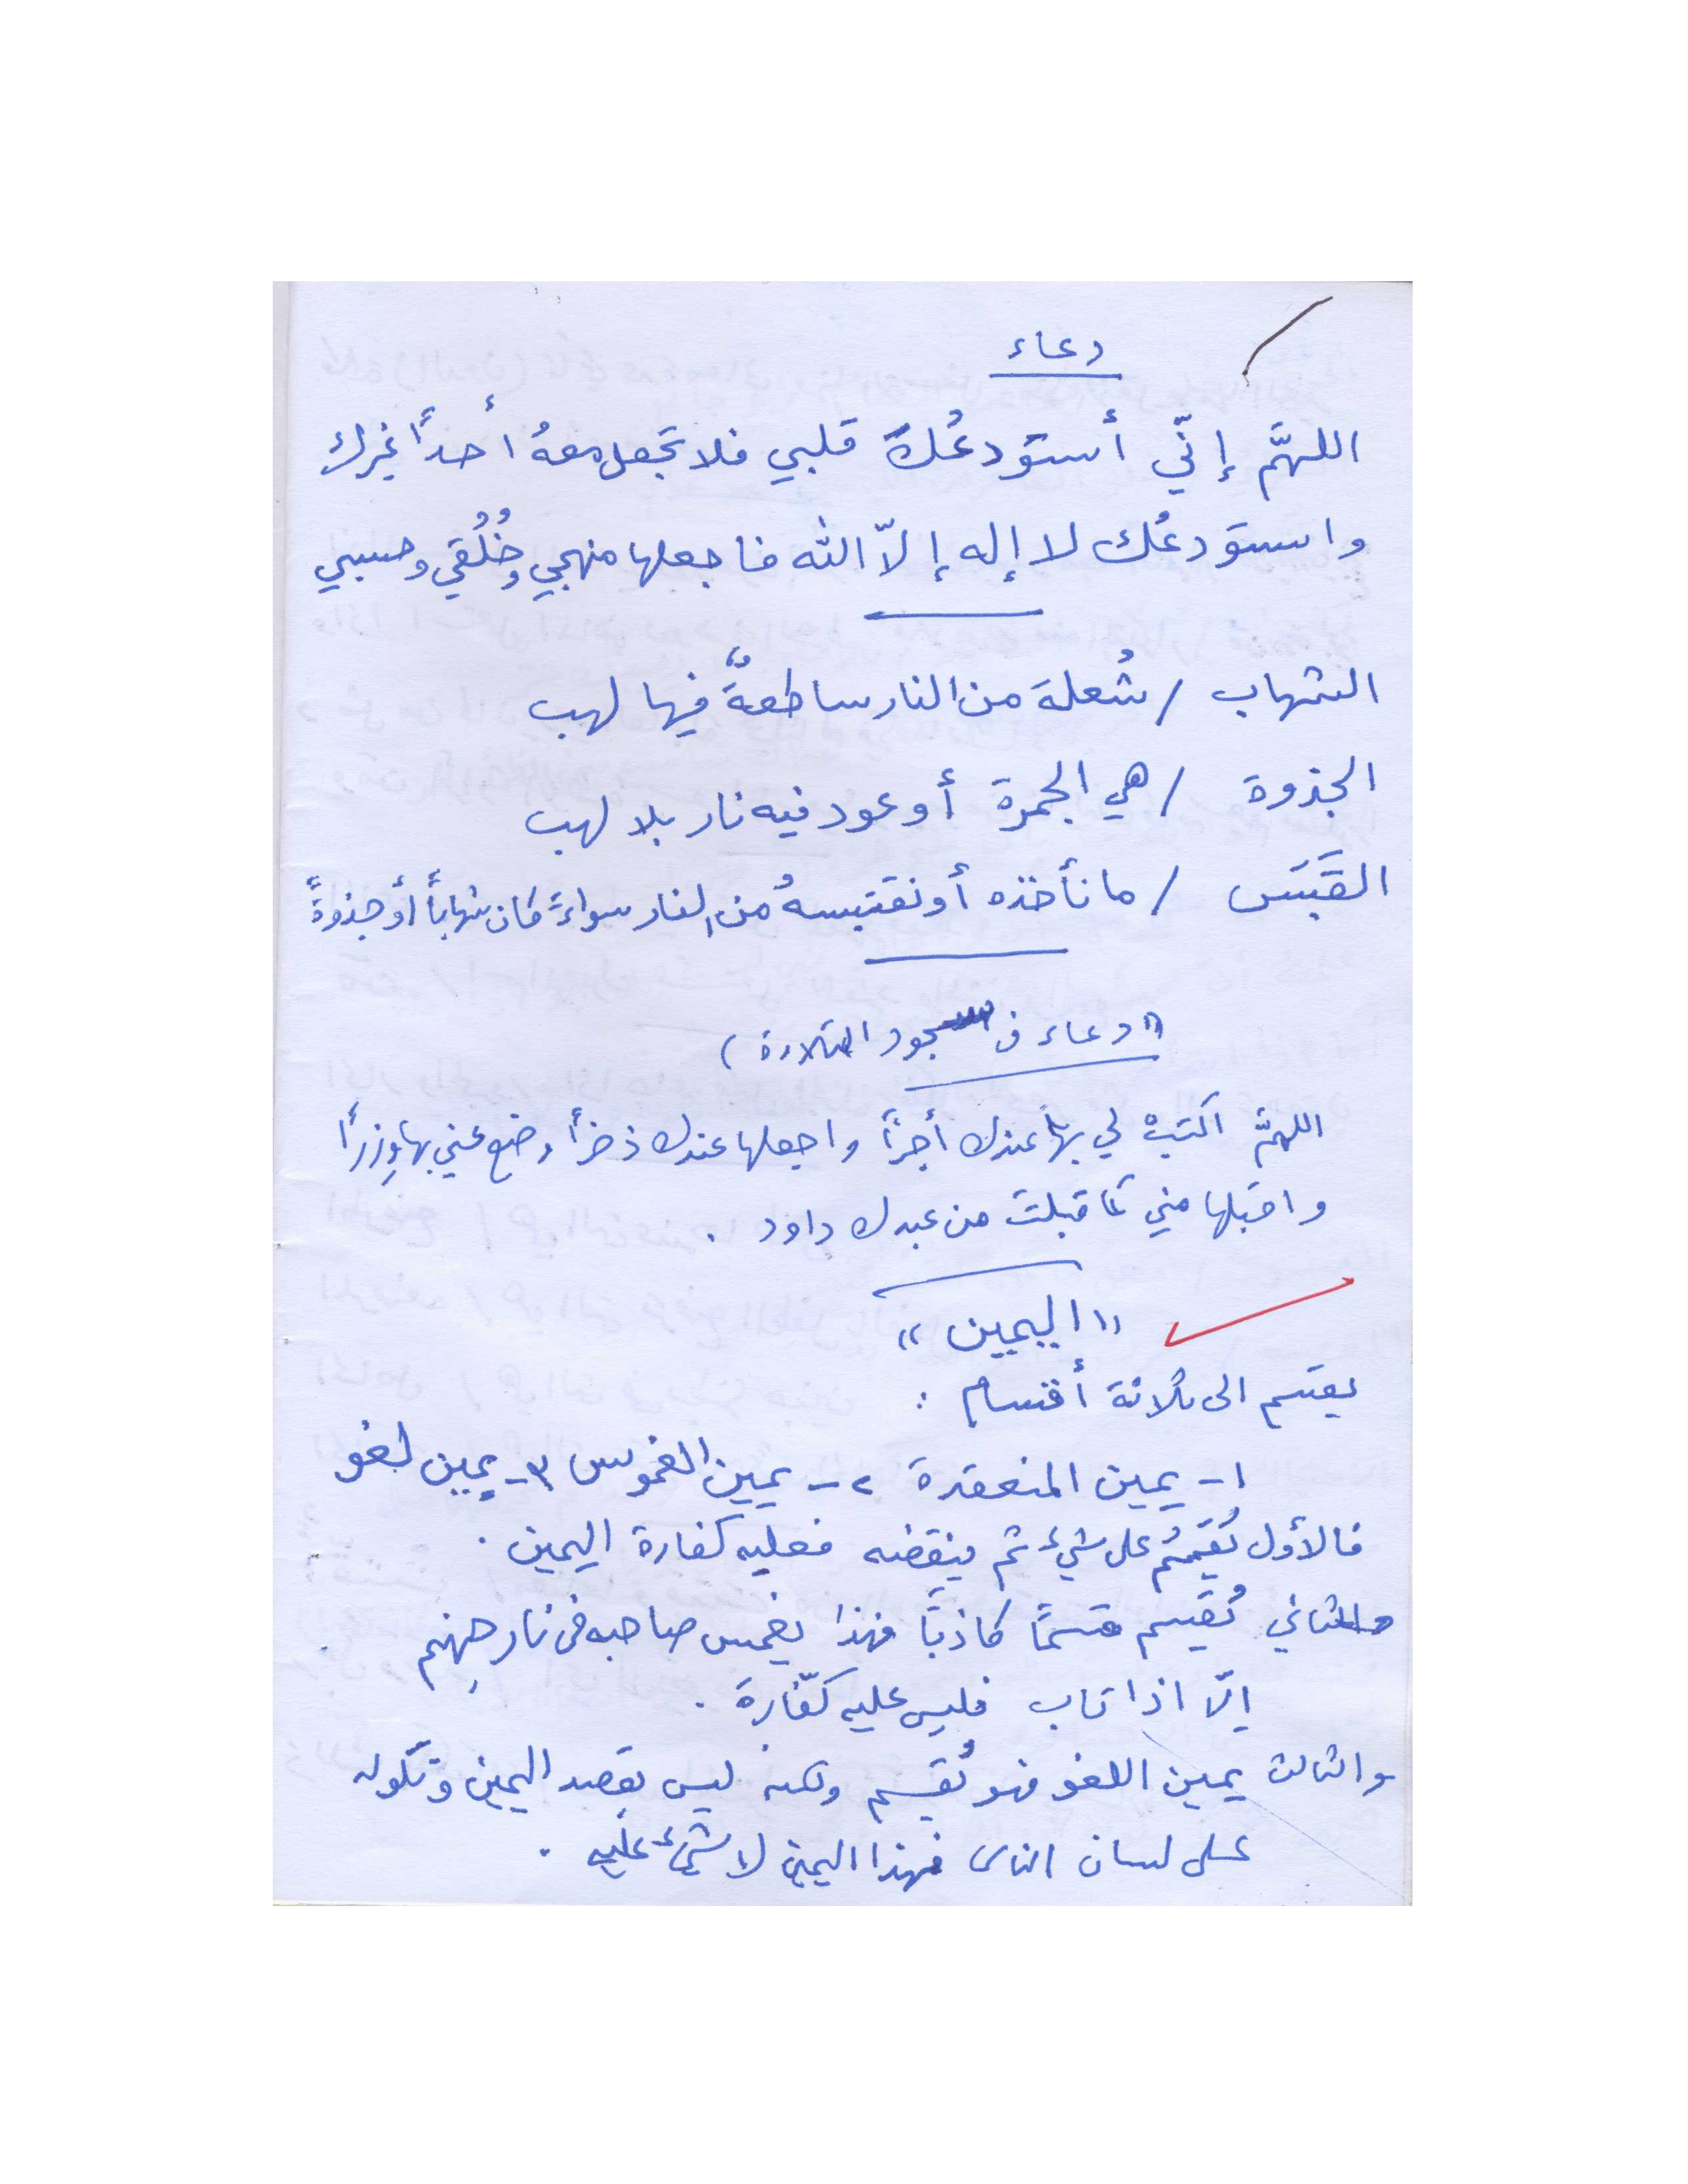 دعاء
اللهمَّ إنّي أستودعُكَ قلبي فلا تجعل معهُ أحداً غيرك
واستودعُك لا إله إلاّ الله فاجعلها منهجي وخُلُقي وحسبي
الشهاب / شُعلة من النار ساطعةٌ فيها لهب
الجذوة / هي الجمرة أو عود فيه نار بلا لهب
القَبَس / ما نأخذه أو نقتبسهُ من النار سواءً كان شهاباً أو جذوةً
"دعاء في سجود التلاوة)
اللهمَّ اكتبْ لي بها عندك أجراً واجعلها عندك ذخراً وضع عني بها وِزراً
واقبلها مني كما قبلت من عبدك داود .
"اليمين"
يقسم الى ثلاثة أقسام :
١- يمين المنعقدة ٢- يمين الغموس ٣- يمين لغو
فالأول يُقسِم على شيء ثم ينقضه فعليه كفارة اليمين .
والثاني يُقسِم قسماً كاذباً فهذا يغمس صاحبه في نار جهنم
إلّا اذا تاب فليس عليه كفّارة .
والثالث يمين اللغو فهو يُقسِم ولكنه ليس بقصد اليمين وتكون
على لسان الناس فهذا اليمين لا شيء عليه .